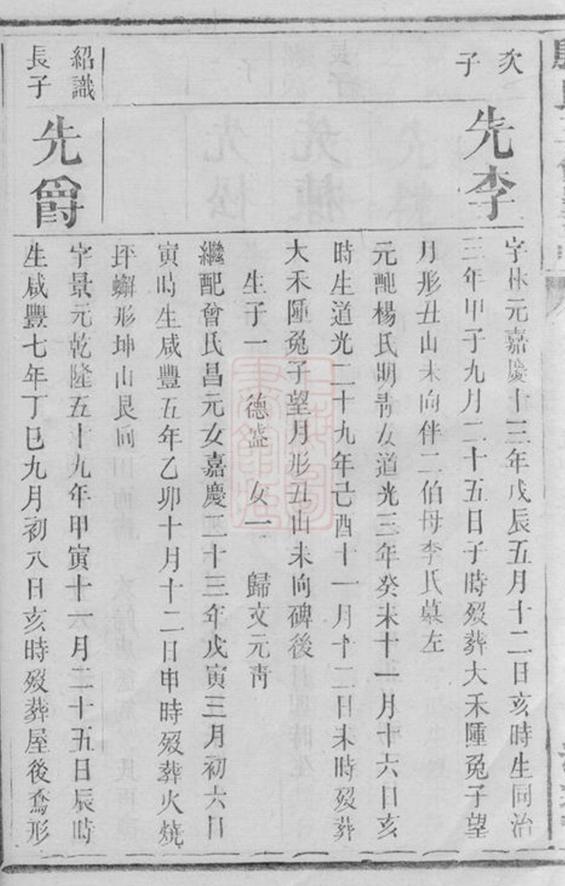 次
子
先李
字林元嘉慶十三年戊辰五月十二日亥時生同治
三年甲子九月二十五日子時歿葬大禾陲兔子望
月形丑山未向伴二伯母李氏墓左
元配楊氏明青女道光三年癸未十一月十六日亥
時生道光二十九年己酉十一月十二日未時歿葬
大禾陲兔子望月形丑山未向碑後
生子一 德盛 女一 歸文元青
繼配曾氏昌元女嘉慶二十三年戊寅三月初六日
寅時生咸豐五年乙卯十月十二日申時歿葬火燒
坪蠏形坤山艮向
紹識
長子
先爵
字景元乾隆五十九年甲寅十一月二十五日辰時
生咸豐七年丁巳九月初八日亥時歿葬屋後鴦形